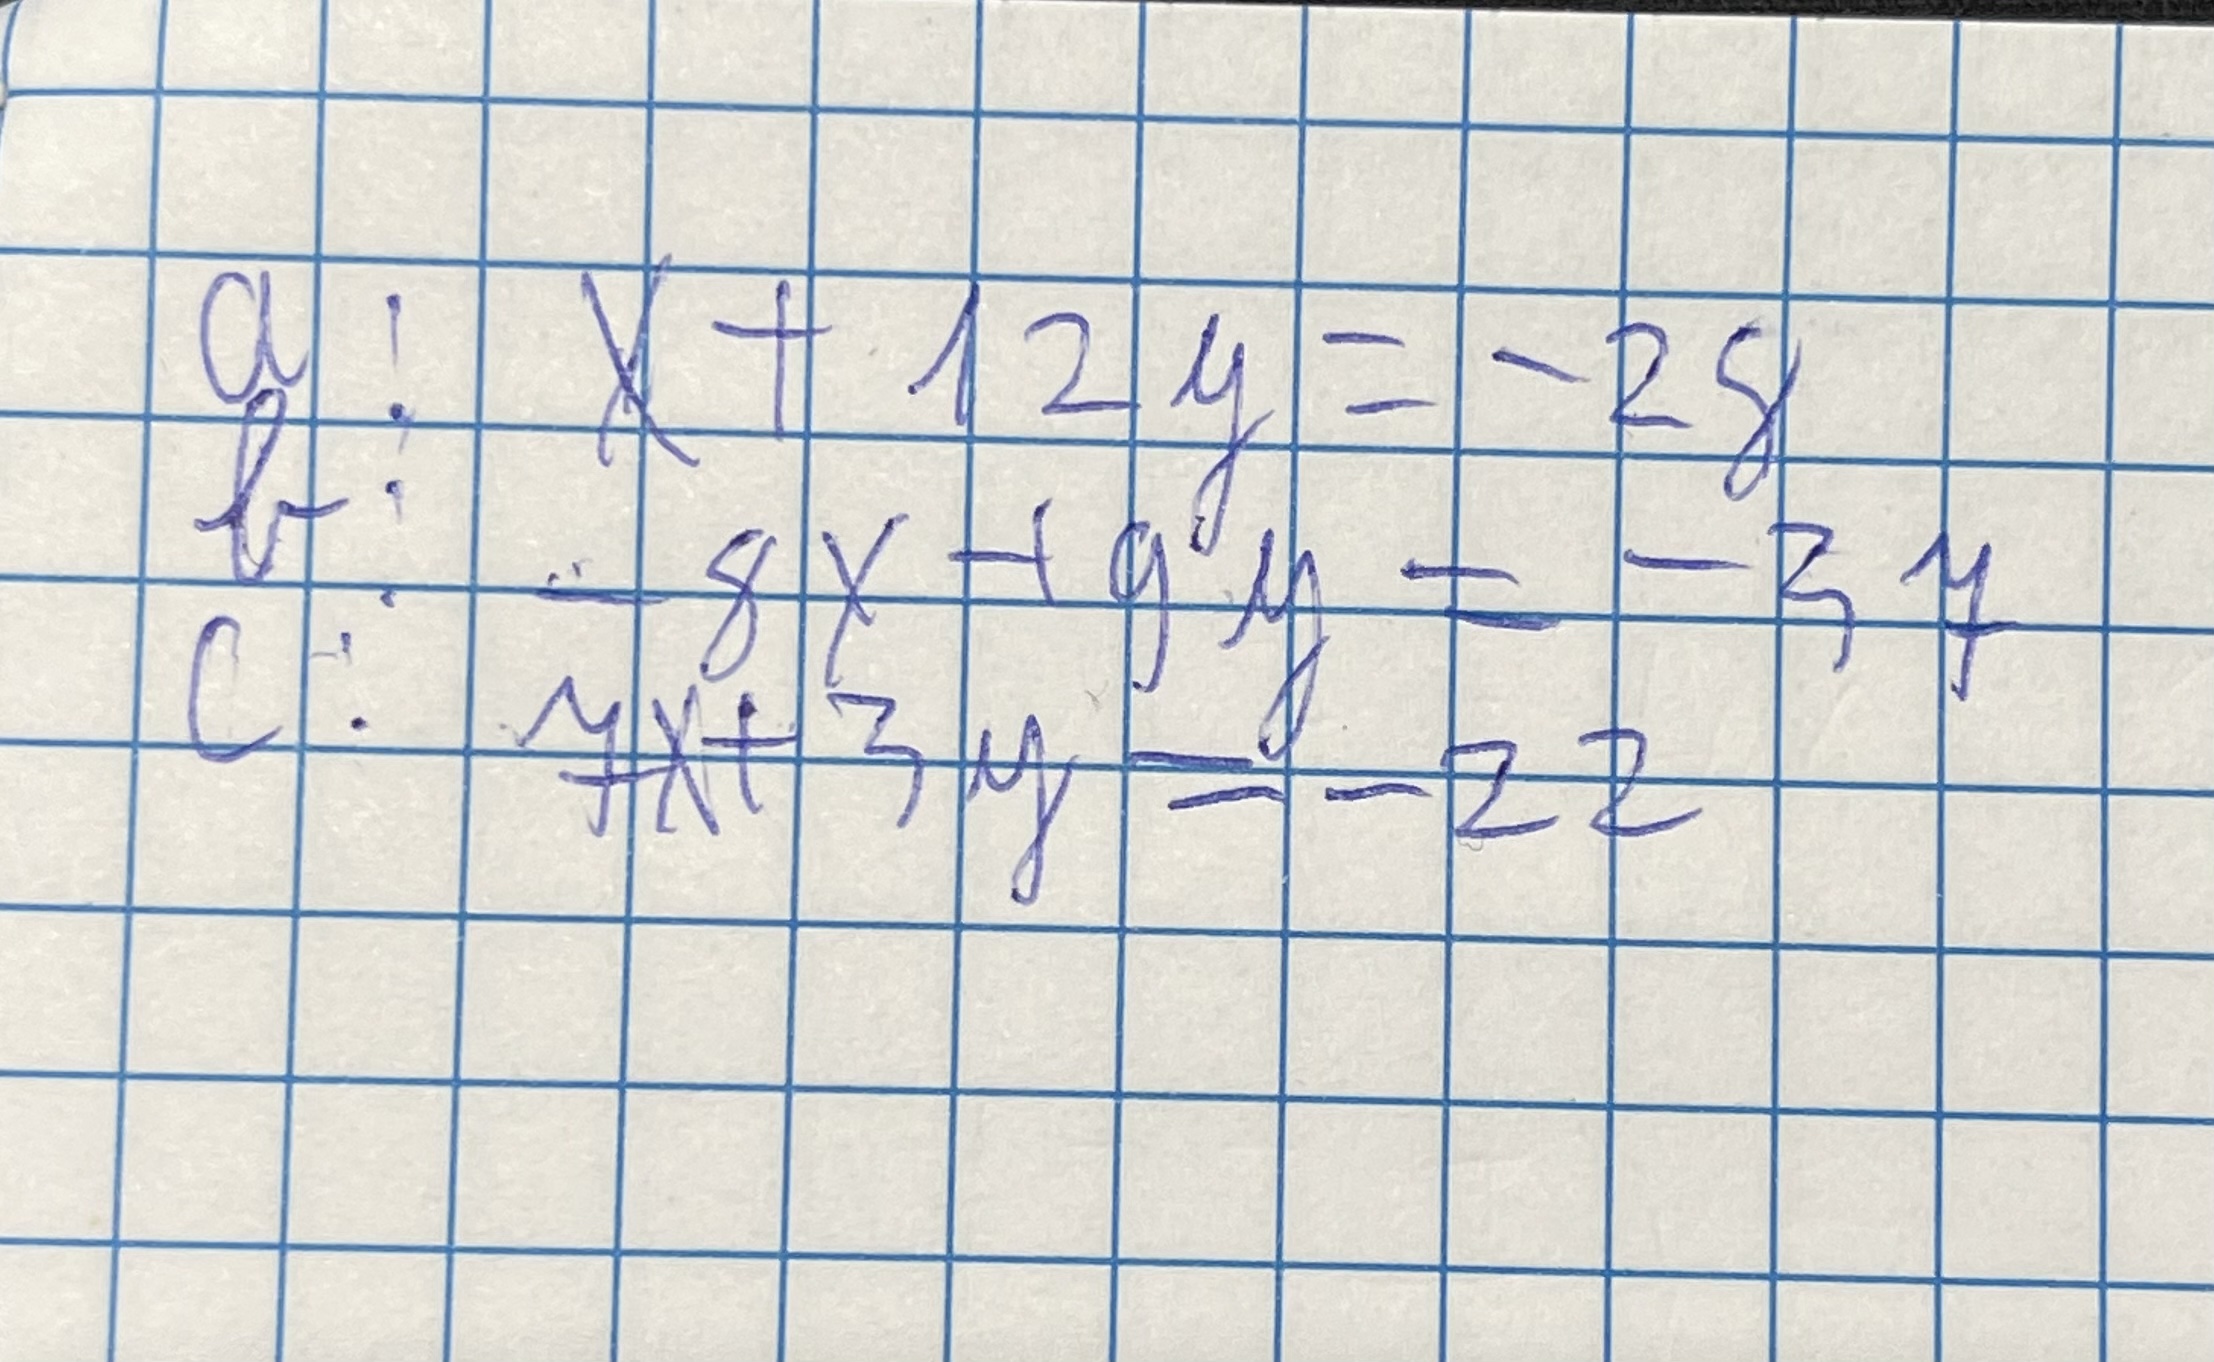 a: x + 12y = -28
b: -8x + 9y = -37
c: 7x + 3y = -22